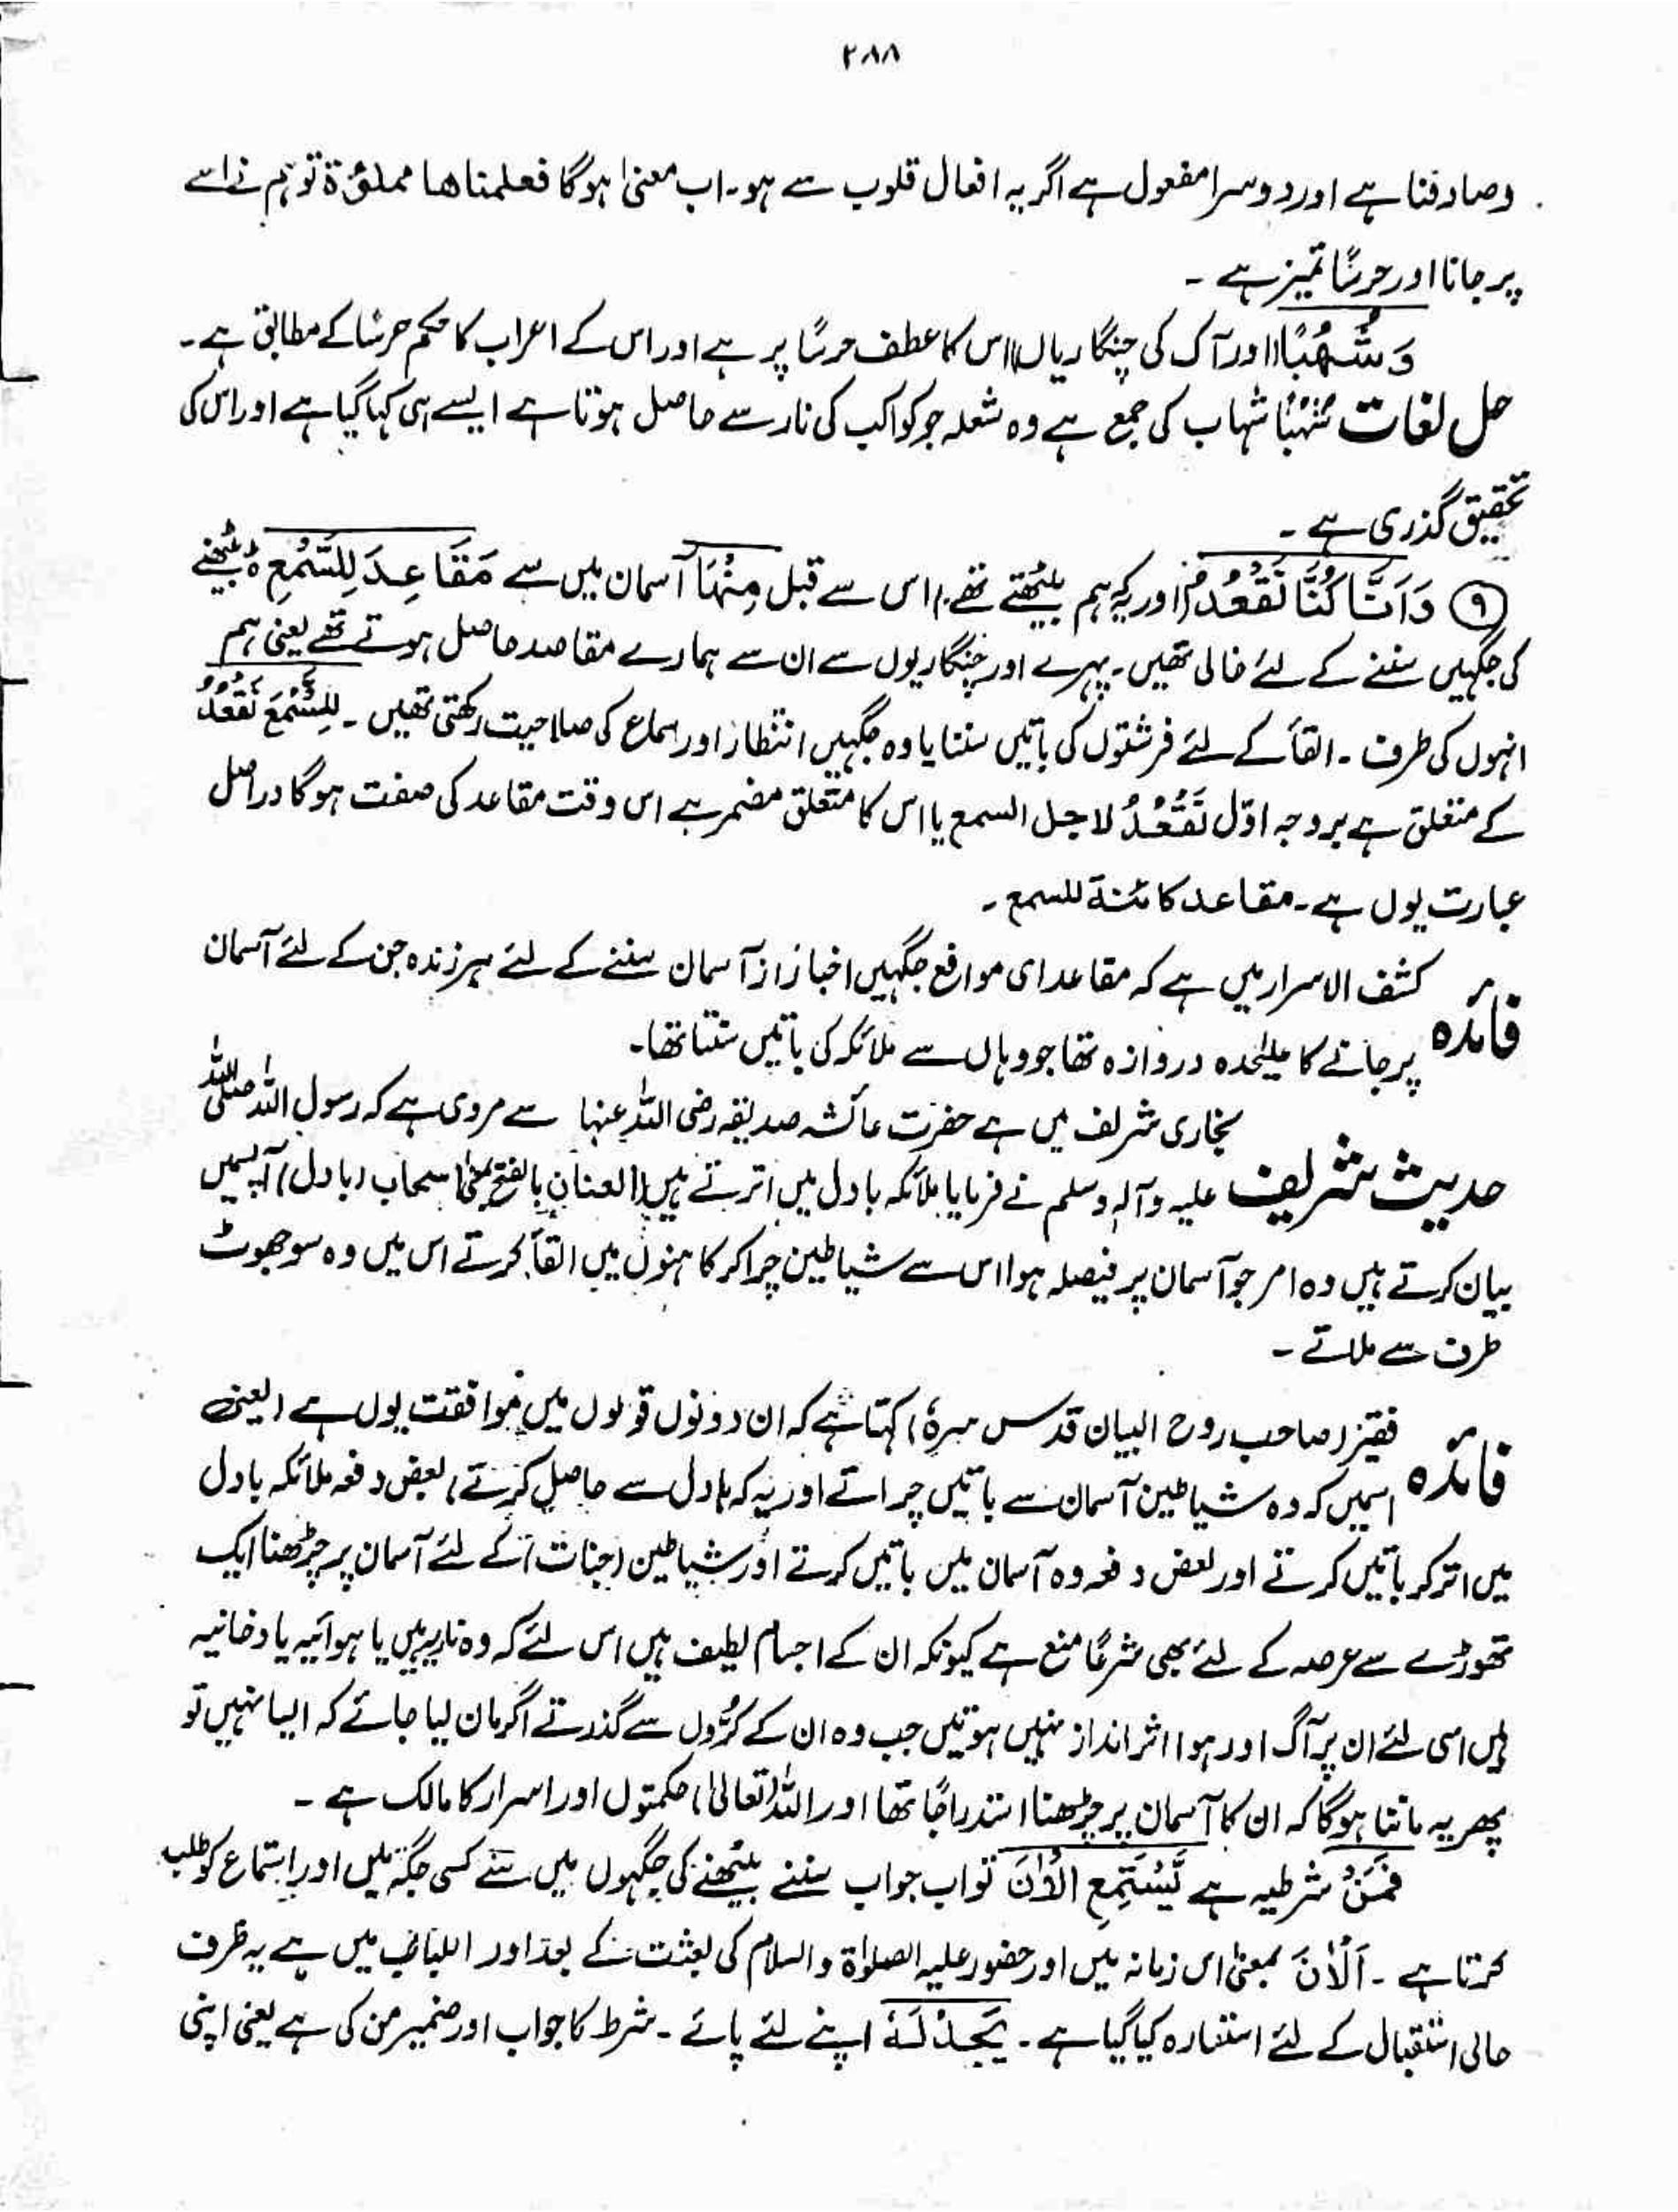 ۲۸۸
وصادفنا ہے اور دوسرا مفعول ہے اگر یہ افعال قلوب سے ہو۔ اب معنیٰ ہوگا فعلمناھا مملوٴۃ تو ہم نے اسے
پر جانا اور حرسًا تمیز ہے ۔
وَ شُھُبًا اور آگ کی چنگاریاں اس کا عطف حرسًا پر ہے اور اس کے اعراب کا حکم حرسًا کے مطابق ہے۔
حل لغات شُہُبًا شہاب کی جمع ہے وہ شعلہ جو کواکب کی نار سے حاصل ہوتا ہے ایسے ہی کہا گیا ہے اور اس کی
تحقیق گذری ہے ۔
⑨ وَ اَنَّا کُنَّا نَقْعُدُ (اور یہ کہ ہم بیٹھتے تھے) اس سے قبل مِنْہَا آسمان میں سے مَقَاعِدَ لِلسَّمْعِ ہ بیٹھنے
کی جگہیں سننے کے لئے خالی تھیں۔ پہرے اور چنگاریوں سے ان سے ہمارے مقاصد حاصل ہوتے تھے یعنی ہم
انہوں کی طرف ۔ القأ کے لئے فرشتوں کی باتیں سننا یا وہ جگہیں انتظار اور سماع کی صلاحیت رکھتی تھیں ۔ لِلسَّمْعِ نَقْعُدُ
کے متعلق ہے بر وجہ اوّل نَقْعُدُ لاجل السمع یا اس کا متعلق مضمر ہے اس وقت مقاعد کی صفت ہوگا دراصل
عبارت یوں ہے۔ مقاعد کائنۃ للسمع ۔
کشف الاسرار میں ہے کہ مقاعد ای مواقع جگہیں اخبار از آسمان سننے کے لئے ہر زندہ جن کے لئے آسمان
فائدہ پر جانے کا علیٰحدہ دروازہ تھا جو وہاں سے ملائکہ کی باتیں سنتا تھا۔
بخاری شریف میں ہے حضرت عائشہ صدیقہ رضی اللہ عنہا سے مروی ہے کہ رسول اللہ صلی اللہ
حدیث شریف علیہ وآلہ وسلم نے فرمایا ملائکہ بادل میں اترتے ہیں (العنان بالفتح بمعنیٰ سحاب (بادل) آپسمیں
بیان کرتے ہیں وہ امر جو آسمان پر فیصلہ ہوا اس سے شیاطین چرا کر کاہنوں میں القأ کرتے اس میں وہ سو جھوٹ
طرف سے ملاتے ۔
فقیر (صاحب روح البیان قدس سرہٗ) کہتا ہے کہ ان دونوں قولوں میں موافقت یوں ہے (یعنی
فائدہ اسمیں کہ وہ شیاطین آسمان سے باتیں چراتے اور یہ کہ بادل سے حاصل کرتے) بعض دفعہ ملائکہ بادل
میں اتر کر باتیں کرتے اور بعض دفعہ وہ آسمان میں باتیں کرتے اور شیاطین (جنات) کے لئے آسمان پر چڑھنا ایک
تھوڑے سے عرصہ کے لئے بھی شرعًا منع ہے کیونکہ ان کے اجسام لطیف ہیں اس لئے کہ وہ ناریہ ہیں یا ہوائیہ یا دخانیہ
ہیں اسی لئے ان پر آگ اور ہوا اثر انداز نہیں ہوتیں جب وہ ان کے کرُّوں سے گذرتے اگر مان لیا جائے کہ ایسا نہیں تو
پھر یہ ماننا ہوگا کہ ان کا آسمان پر چڑھنا استدراجًا تھا اور اللہ (تعالیٰ) حکمتوں اور اسرار کا مالک ہے ۔
فَمَنْ شرطیہ ہے یَّسْتَمِعِ الْاٰنَ تو اب جواب سننے بیٹھنے کی جگہوں میں سے کسی جگہ میں اور استماع کو طلب
کرتا ہے ۔ اَلْاٰنَ بمعنیٰ اس زمانہ میں اور حضور علیہ الصلوٰۃ والسلام کی بعثت کے بعد اور اللباب میں ہے یہ ظرف
حالی استقبال کے لئے استعارہ کیا گیا ہے ۔ یَجِدْ لَہٗ اپنے لئے پائے ۔ شرط کا جواب اور ضمیر من کی ہے یعنی اپنی